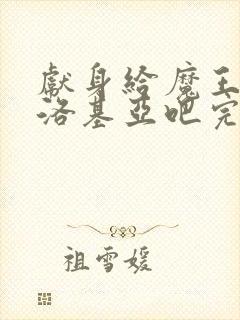 獻身給魔王
洛基亞吧完
祖雪媛